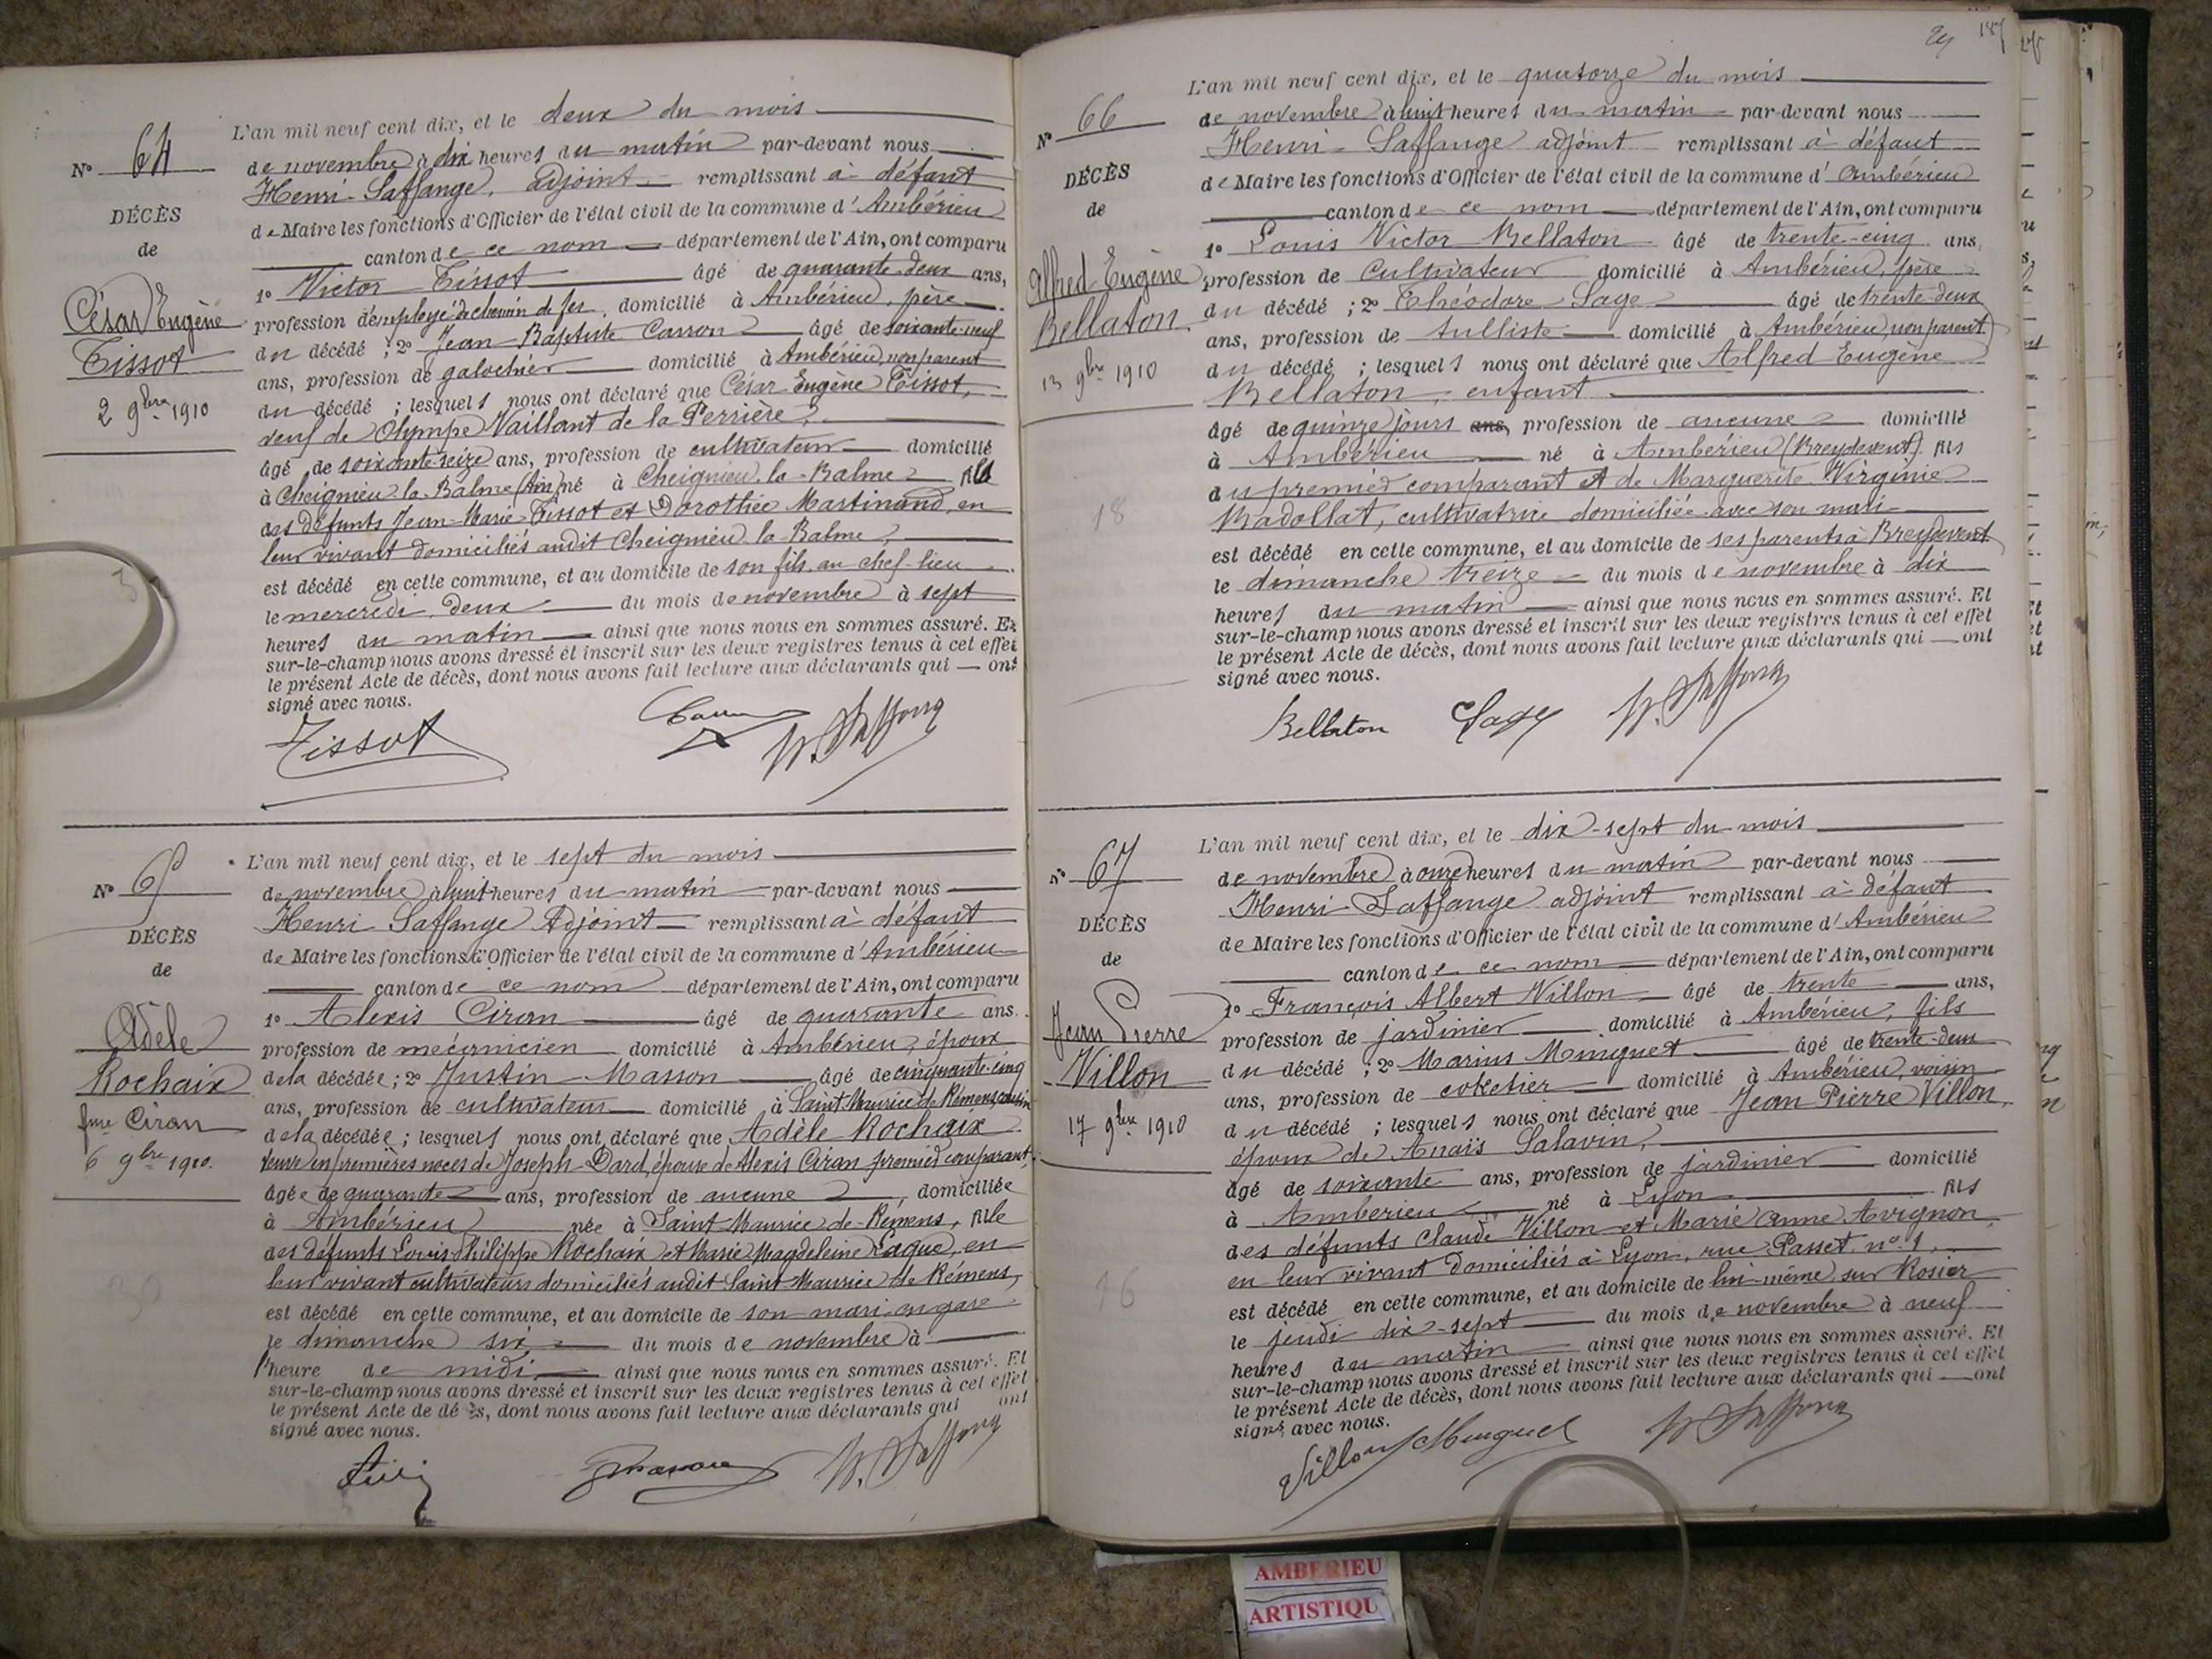 N° 64
DÉCÈS
de
César Eugène
Tissot
2 9bre 1910
L'an mil neuf cent dix, et le deux du mois
de novembre à dix heures du matin par-devant nous
Henri Laffange, adjoint remplissant à défaut
de Maire les fonctions d'Officier de l'état civil de la commune d'Ambérieu
canton de ce nom département de l'Ain, ont comparu
1° Victor Tissot âgé de quarante-deux ans,
profession d'employé de chemin de fer, domicilié à Ambérieu, père
du décédé ; 2° Jean-Baptiste Carron âgé de soixante-neuf
ans, profession de galochier domicilié à Ambérieu, non parent
du décédé ; lesquels nous ont déclaré que César Eugène Tissot,
veuf de Olympe Vaillant de la Perrière,
âgé de soixante-seize ans, profession de cultivateur domicilié
à Cheignieu-la-Balme (Ain) né à Cheignieu-la-Balme fils
des défunts Jean-Marie Tissot et Dorothée Martinand, en
leur vivant domiciliés audit Cheignieu-la-Balme,
est décédé en cette commune, et au domicile de son fils, au chef-lieu
le mercredi deux du mois de novembre à sept
heures du matin ainsi que nous nous en sommes assuré. Et
sur-le-champ nous avons dressé et inscrit sur les deux registres tenus à cet effet
le présent Acte de décès, dont nous avons fait lecture aux déclarants qui ont
signé avec nous.
Tissot H. Laffange
N° 65
DÉCÈS
de
Adèle
Rochaix
fme Ciran
6 9bre 1910.
L'an mil neuf cent dix, et le sept du mois
de novembre à huit heures du matin par-devant nous
Henri Laffange Adjoint remplissant à défaut
de Maire les fonctions d'Officier de l'état civil de la commune d'Ambérieu
canton de ce nom département de l'Ain, ont comparu
1° Alexis Ciran âgé de quarante ans.
profession de mécanicien domicilié à Ambérieu, époux
de la décédée ; 2° Justin Masson âgé de cinquante-cinq
ans, profession de cultivateur domicilié à Saint Maurice de Rémens, cousin
de la décédée ; lesquels nous ont déclaré que Adèle Rochaix
veuve en premières noces de Joseph Dard, épouse de Alexis Ciran premier comparant,
âgée de quarante ans, profession de aucune, domiciliée
à Ambérieu née à Saint Maurice-de-Rémens, fille
des défunts Louis Philippe Rochaix et Marie Magdeleine Laque, en
leur vivant cultivateurs domiciliés audit Saint Maurice de Rémens,
est décédé en cette commune, et au domicile de son mari en gare
le dimanche six du mois de novembre à
l'heure de midi, ainsi que nous nous en sommes assuré. Et
sur-le-champ nous avons dressé et inscrit sur les deux registres tenus à cet effet
le présent Acte de dé ès, dont nous avons fait lecture aux déclarants qui ont
signé avec nous.
Masson H. Laffange
187
N° 66
DÉCÈS
de
Alfred Eugène
Bellaton
13 9bre 1910
18
L'an mil neuf cent dix, et le quatorze du mois
de novembre à huit heures du matin par-devant nous
Henri Laffange adjoint remplissant à défaut
de Maire les fonctions d'Officier de l'état civil de la commune d'Ambérieu
canton de ce nom département de l'Ain, ont comparu
1° Louis Victor Bellaton âgé de trente-cinq ans,
profession de cultivateur domicilié à Ambérieu, père
du décédé ; 2° Théodore Sage âgé de trente-deux
ans, profession de tulliste domicilié à Ambérieu, non parent
du décédé ; lesquels nous ont déclaré que Alfred Eugène
Bellaton, enfant
âgé de quinze jours ans, profession de aucune domicilié
à Ambérieu né à Ambérieu (Breydevent) fils
du premier comparant et de Marguerite Virginie
Badollat, cultivatrice domiciliée avec son mari
est décédé en cette commune, et au domicile de ses parents à Breydevent
le dimanche treize du mois de novembre à dix
heures du matin ainsi que nous nous en sommes assuré. Et
sur-le-champ nous avons dressé et inscrit sur les deux registres tenus à cet effet
le présent Acte de décès, dont nous avons fait lecture aux déclarants qui ont
signé avec nous.
Bellaton Sage H. Laffange
N° 67
DÉCÈS
de
Jean Pierre
Villon
17 9bre 1910
16
L'an mil neuf cent dix, et le dix-sept du mois
de novembre à onze heures du matin par-devant nous
Henri Laffange adjoint remplissant à défaut
de Maire les fonctions d'Officier de l'état civil de la commune d'Ambérieu
canton de ce nom département de l'Ain, ont comparu
1° François Albert Villon âgé de trente ans,
profession de jardinier domicilié à Ambérieu, fils
du décédé ; 2° Marius Minguet âgé de trente-deux
ans, profession de domicilié à Ambérieu, voisin
du décédé ; lesquels nous ont déclaré que Jean Pierre Villon,
époux de Anaïs Salavin,
âgé de soixante ans, profession de jardinier domicilié
à Ambérieu né à Lyon fils
des défunts Claude Villon et Marie Anne Avignon,
en leur vivant domiciliés à Lyon, rue Passet n° 1,
est décédé en cette commune, et au domicile de lui-même, sur Rosier
le jeudi dix-sept du mois de novembre à neuf
heures du matin ainsi que nous nous en sommes assuré. Et
sur-le-champ nous avons dressé et inscrit sur les deux registres tenus à cet effet
le présent Acte de décès, dont nous avons fait lecture aux déclarants qui ont
signé avec nous.
Villon Minguet H. Laffange
AMBERIEU
ARTISTIQU